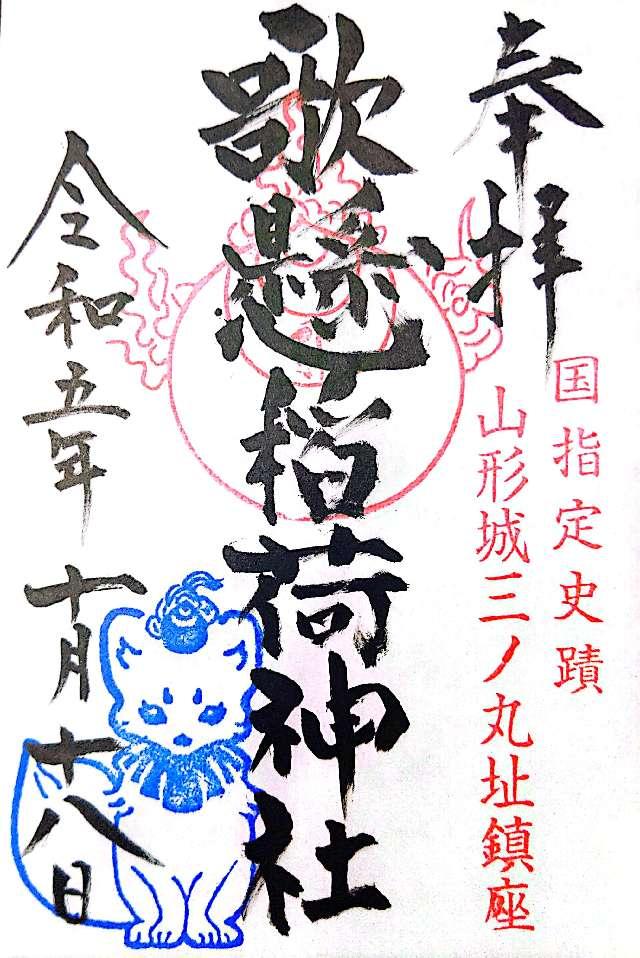 奉拝
国指定史蹟
山形城三ノ丸址鎮座
歌懸稲荷神社
令和五年 十月十八日